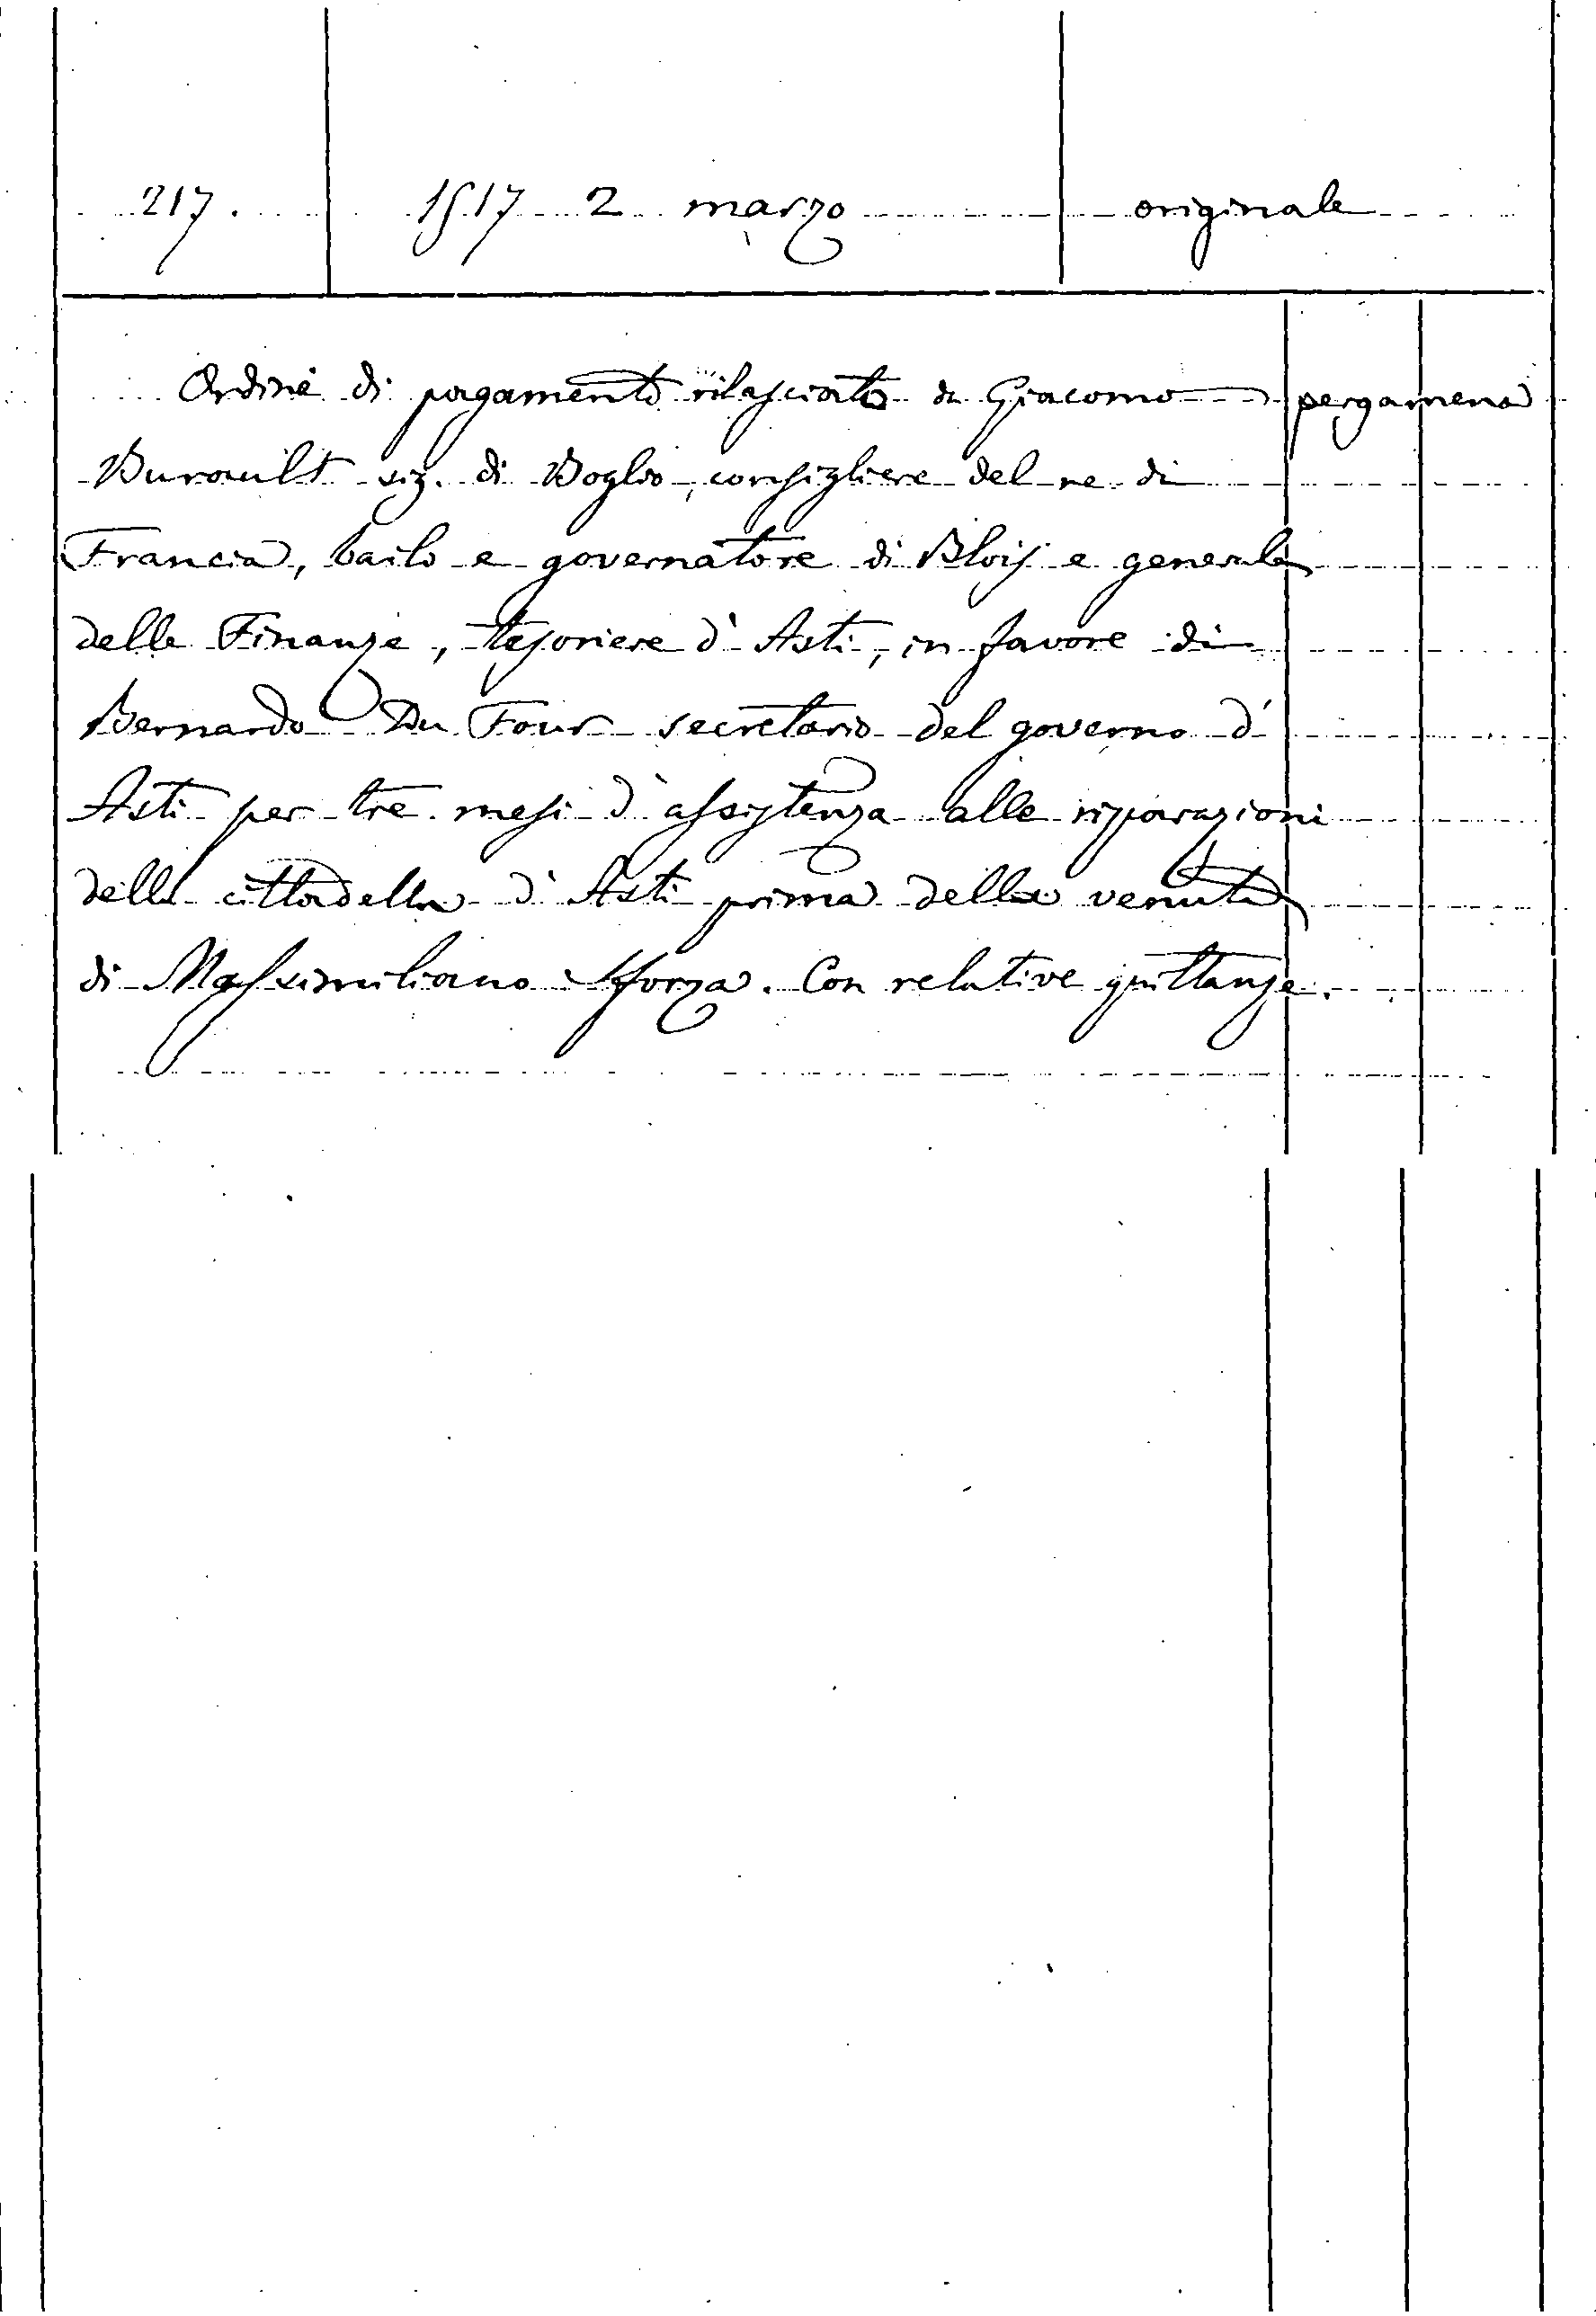 217. 1517 2 marzo originale
Ordine di pagamento rilasciato da Giacomo pergamena
Burault sig. di Boglio, consigliere del re di
Francia, bailo e governatore di Blois e generale
delle Finanze, tesoriere d'Asti, in favore di
Bernardo Du Four secretario del governo d'
Asti per tre mesi d'assistenza alle riparazioni
della cittadella d'Asti prima della venuta
di Massimiliano Sforza. Con relative quittanze.